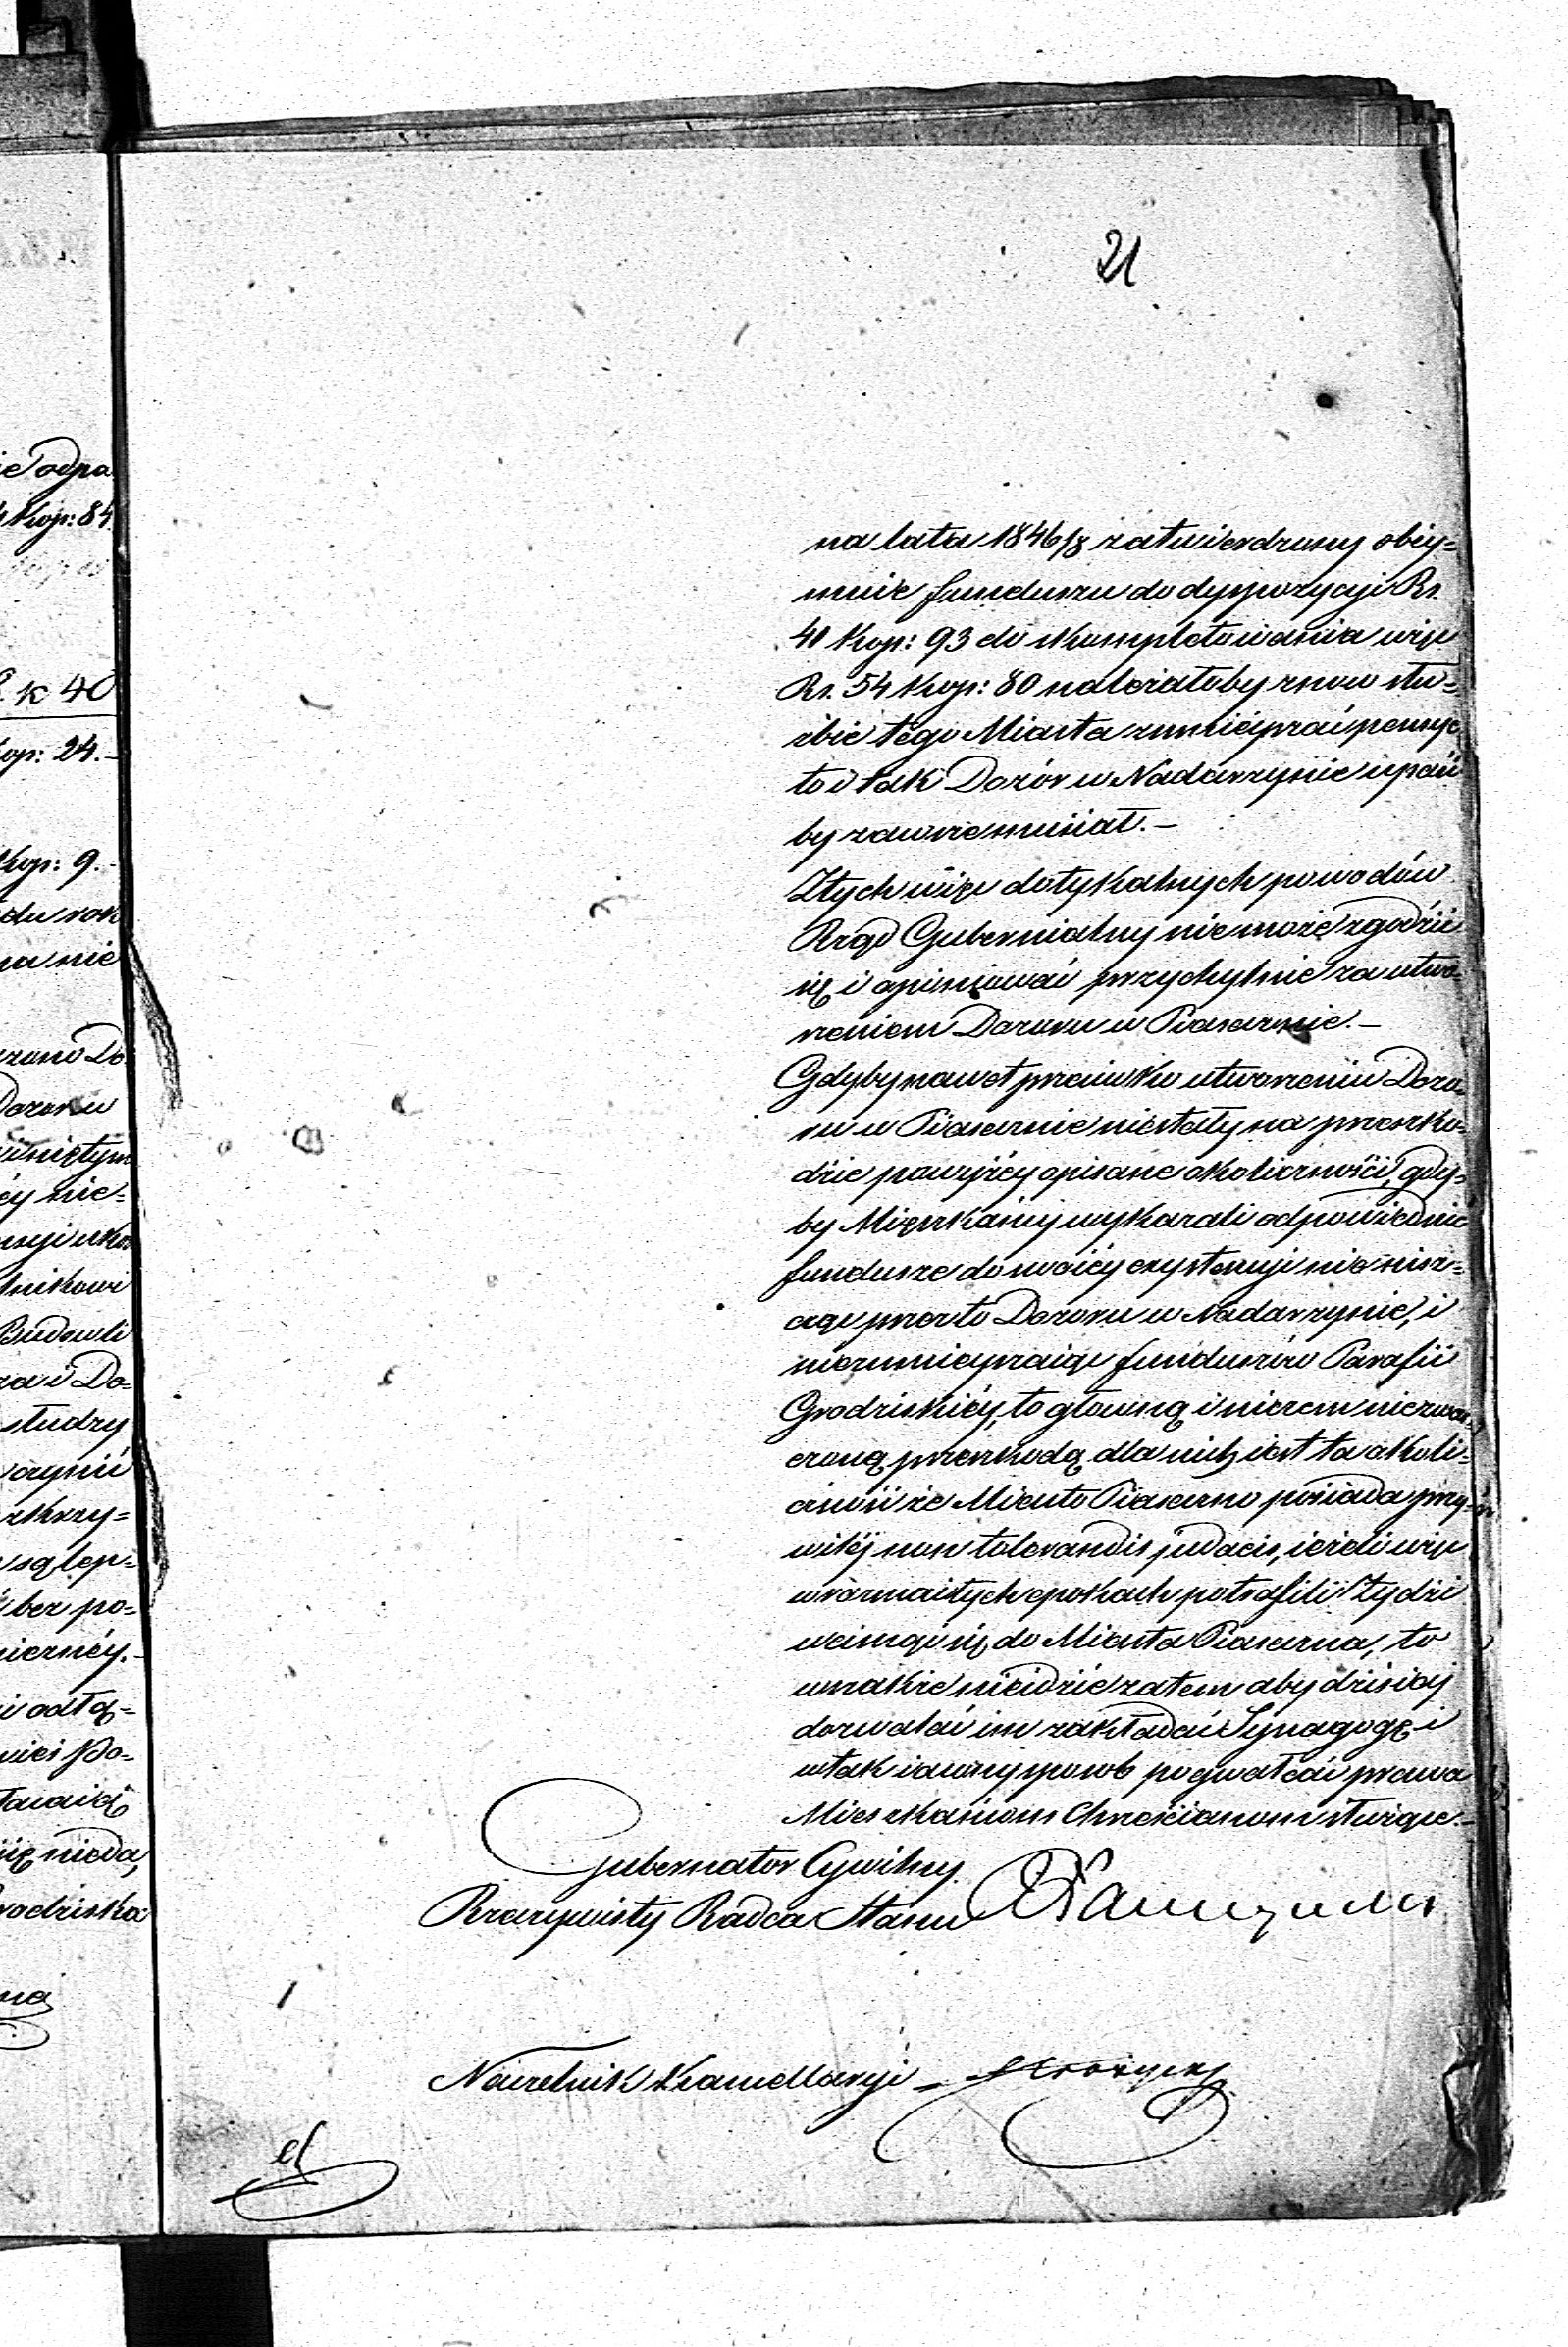 21
ie odpa
Kop: 84.
k 40
op: 24.-
Kop: 9.-
du rok
na nie
Do
Dozoru
niętym
éy nie=
nikowi
Budowli
za i Do=
studzy
czynić
skrzy=
są lep=
bez po=
nierney.-
i odłą=
wieś Po=
się nieda,
rodziska
na lata 1846/8 zatwierdzony obiy=
muie funduszu do dyspozycyi Rs.
41 Kop: 93 do skompletowania więc
Rs. 54 Kop: 80 należałoby znow słu=
żbie tégo Miasta zmnieyszać pensye
to i tak Dozór w Nadarzynie upaść
by zawsze musiał.-
Z tych więc dotykalnych powodów
Rząd Gubernialny nie może zgodzić
się i opiniować przychylnie za utwo=
rzeniem Dozoru w Piasecznie.-
Gdyby nawet przeciwko utworzeniu Dozo=
ru w Piasecznie niestały na przeszko=
dzie powyżéy opisane okoliczności, gdy=
by Mieszkańcy wykazali odpowiednie
fundusze do swoiéy exystencyi nie nisz=
cząc przez to Dozoru w Nadarzynie, i
niezmnieyszaiąc funduszów Parafii
Grodziskiéy, to głowną i niczem niezwal=
czoną przeszkodą dla nich iest ta okoli=
czność że Miasto Piaseczno posiada przy=
wiléj non tolerandis judaeis, ieżeli więc
w rozmaitych epokach potrafili Żydzi
wcisnąć się do Miasta Piaseczna, to
wszakże nieidzie zatem aby dzisiaj
dozwalać im zakładać Synagogę i
w tak iawny sposob pogwałcać prawa
Mieszkańcom Chrześcianom służące.-
Gubernator Cywilny.
Rzeczywisty Radca Stanu
Naczelnik Kancellaryi